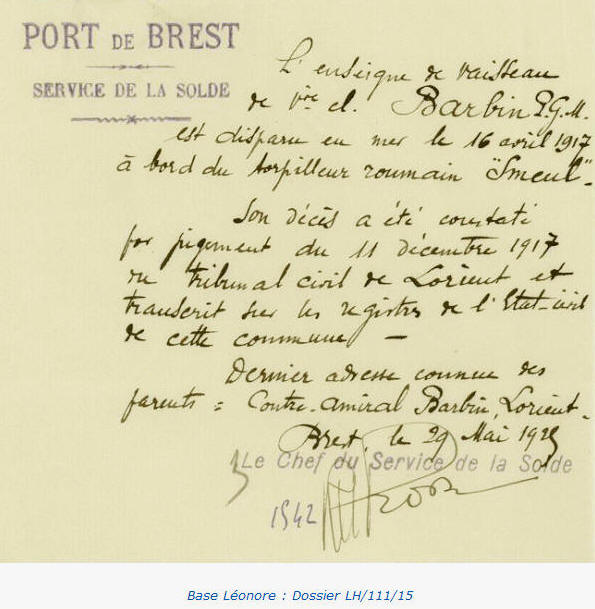 PORT DE BREST
SERVICE DE LA SOLDE
L'enseigne de vaisseau
de 1ère cl. Barbin P.G.M.
est disparu en mer le 16 avril 1917
à bord du torpilleur roumain "Smeul" -
Son décès a été constaté
par jugement du 11 décembre 1917
du tribunal civil de Lorient et
transcrit sur les registres de l'Etat-civil
de cette commune -
Dernier adresse connue des
parents = Contre-Amiral Barbin, Lorient -
Brest, le 29 Mai 1925
Le Chef du Service de la Solde
1542
Base Léonore : Dossier LH/111/15